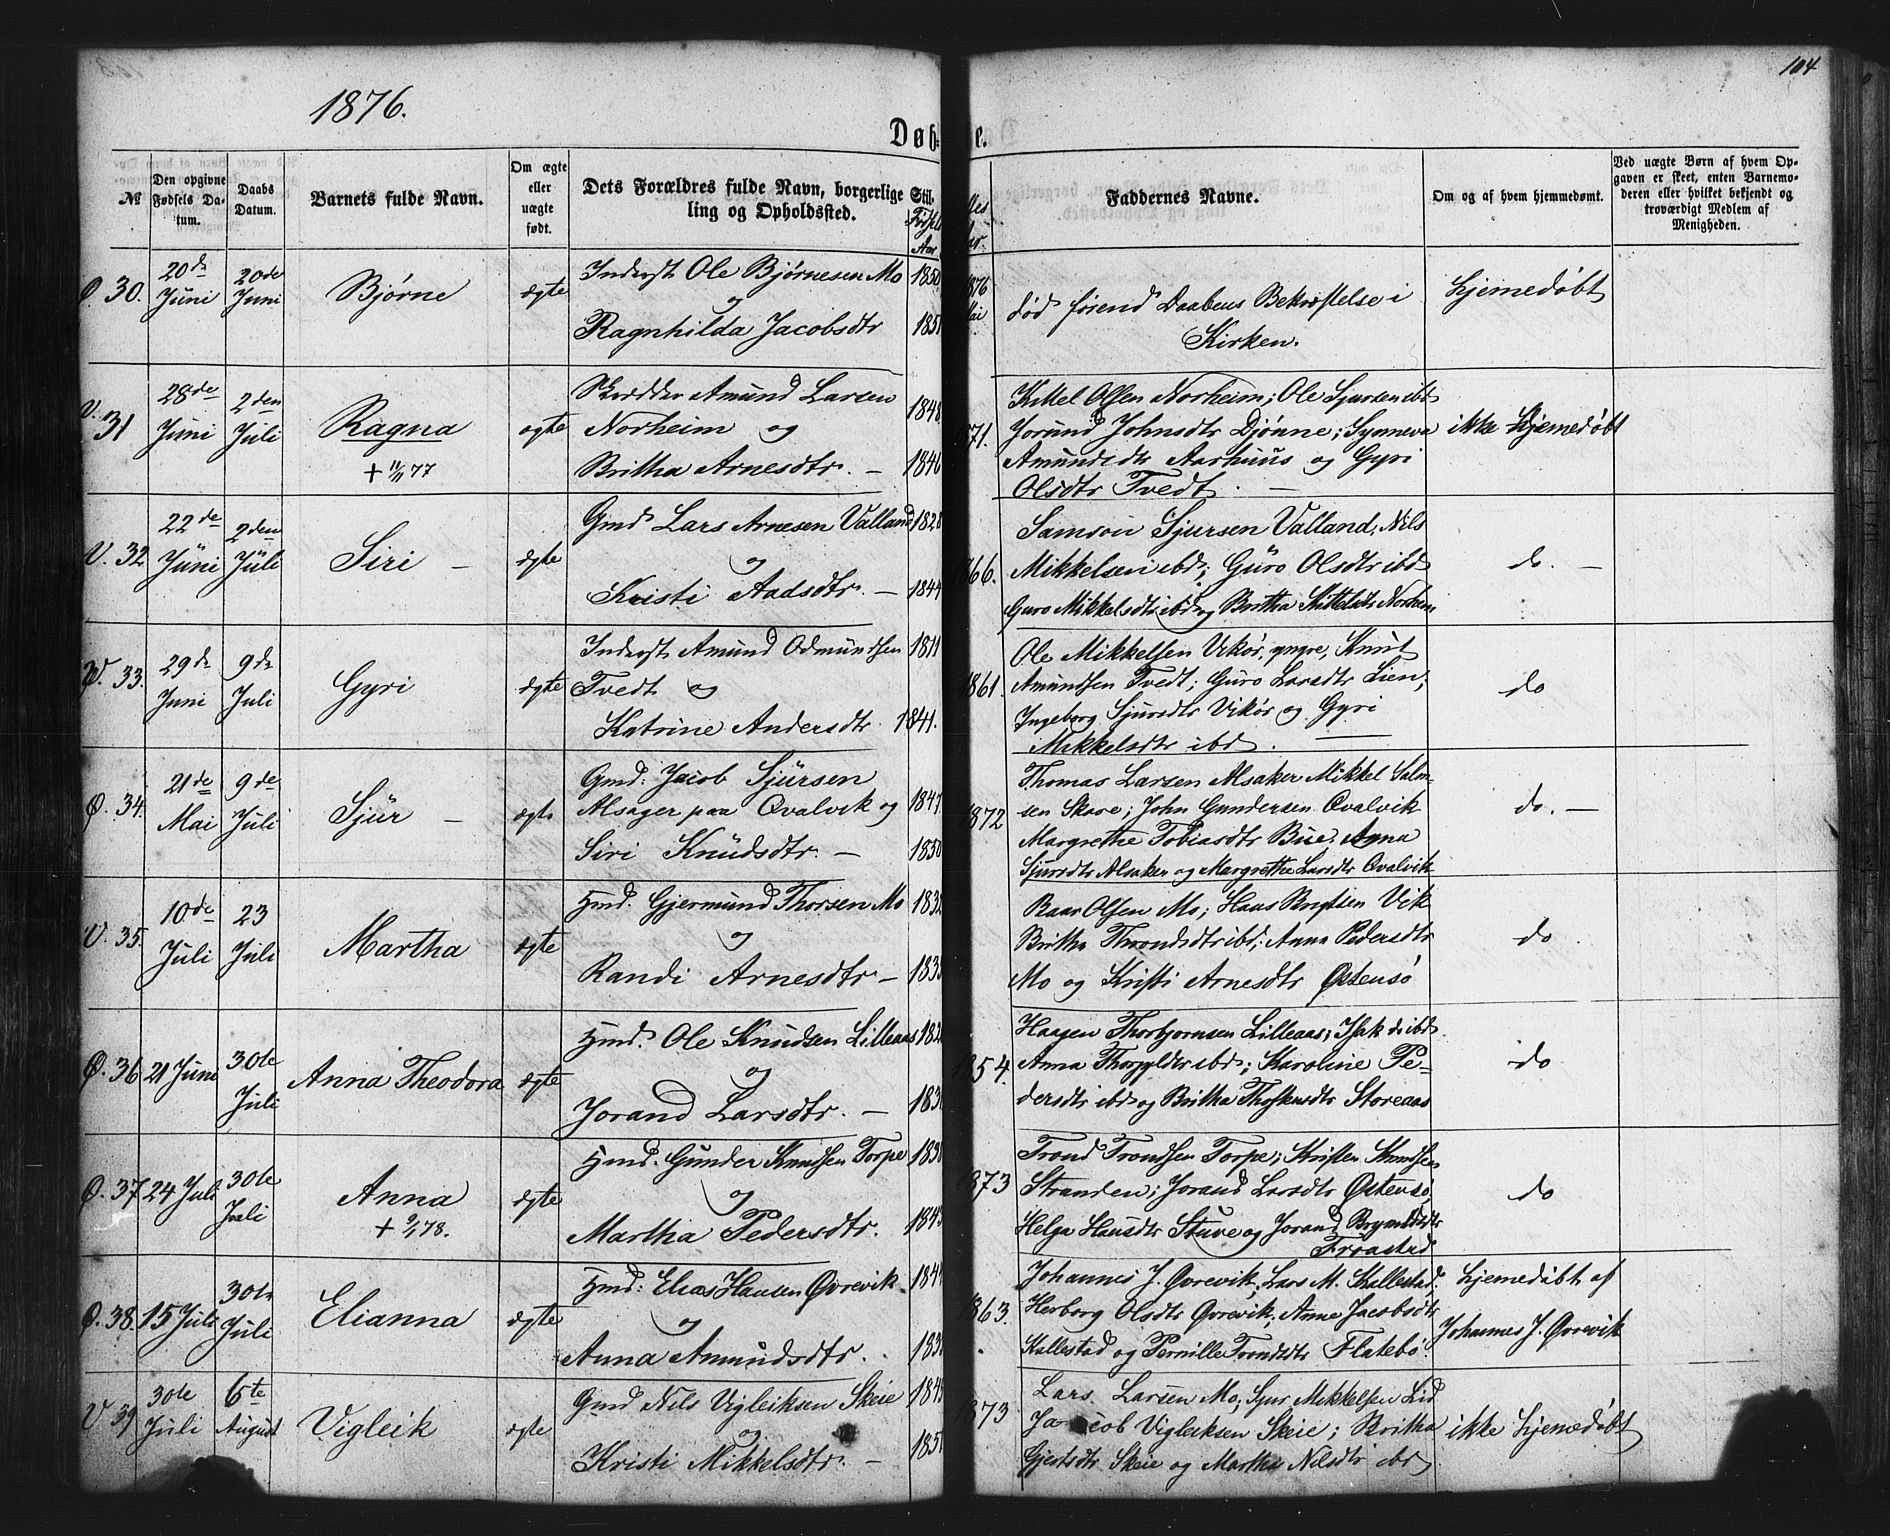 104
1876.
Døb- e.
№
Den opgivne Fødsels Da-
tum.
Daabs
Datum.
Barnets fulde Navn.
Om ægte
eller
uægte
født.
Dets Forældres fulde Navn, borgerlige Stil-
ling og Opholdssted.
Fødsels
Aar
Faddernes Navne.
Om og af hvem hjemmedøbt.
Ved uægte Børn af hvem Op-
gaven er skeet, enten Barnemo-
deren eller hvilket bekjendt og
troværdigt Medlem af
Menigheden.
Ø. 30. 20de Juni 20de Juni Bjørne ægte
Inderst Ole Bjørnesen Mo 1850
og
Ragnhilda Jacobsdtr 185
1876 Mai
død førend Daabens Bekræftelse i
Kirken.
Hjemedøbt
V. 31 28de Juni 2den Juli Ragna ægte
+ 11/11 77
Skrædder Amund Larsen 1848
Norheim og
Britha Arnesdtr. — 1846
71.
Kittel Olsen Norheim; Ole Sjursen ibd
Jorund Johnsdtr Djønne; Synneva
Amundsdtr Aarhuus og Gyri
Olsdtr Tvedt. —
ikke Hjemedøbt
V. 32 22de Juni 2den Juli Siri — ægte
Gmd Lars Arnesen Valland 1828
og
Kristi Aadsdtr. — 1844
1866.
Samson Sjursen Valland, Nils
Mikkelsen ibd; Guro Olsdtr ibd
Guro Mikkelsdtr ibd og Britha Kittelsdtr Norheim
do. —
V. 33. 29de Juni 9de Juli Gyri ægte
Inderst Amund Odmundsen 1811
Tvedt og
Katrine Andersdtr. 1841.
1861.
Ole Mikkelsen Vikør, yngre, Knut
Amundsen Tvedt; Guro Larsdtr Lien;
Ingeborg Sjursdtr Vikør og Gyri
Mikkelsdtr ibd. —
do
Ø. 34. 21de Mai 9de Juli Sjur — ægte
Gmd. Jacob Sjursen
Alsager paa Qvalvik og 1847.
Siri Knudsdtr. — 1850
1872
Thomas Larsen Alsaker Mikkel Salm-
sen Skare; John Gundersen Qvalvik
Margrethe Tobiasdtr Bue, Anna
Sjursdtr Alsaker og Margrethe Larsdtr Qvalvik
do. —
V. 35. 10de Juli 23 Juli Martha ægte
Hmd. Gjermund Thorsen Mo 183
og
Randi Arnesdtr — 183
Baar Olsen Mo; Hans Vik
Britha Throndsdtr ibd; Anna Pedersdtr
Mo og Kristi Arnesdtr Østensø
do
Ø. 36 21 Juni 30te Juli Anna Theodora ægte
Hmd. Ole Knudsen Lilleaas 182
og
Jorand Larsdtr. — 183
1854.
Haagen Thorbjørnsen Lilleaas; Isak do ibd
Anna ibd; Karoline Pe-
dersdtr ibd og Britha Storeaas
do
Ø. 37 24 Juli 30te Juli Anna ægte
+ 9/1 78.
Hmd. Gunder Knudsen Torpe 183
og
Martha Pedersdtr. 184
1873
Trond Trondsen Torpe; Kristen Knudsen
Stranden; Jorand Larsdtr Østensø,
Helga Hansdtr Stuve og Jorand
Traastad
do
Ø. 38. 15 Juli 30te Juli Elianna ægte
Hmd. Elias Hansen Øvrevik. 184
og
Anna Amundsdtr. 183
1863.
Johannes J. Øvrevik; Lars M. Kallestad;
Herborg Olsdtr Øvrevik, Anne Jacobsdtr
Kallestad og Pernille Trondsdtr Flatebø.
Hjemedøbt af
Johannes J. Øvrevik
V 39 30te Juli 6te August Vigleik ægte
Gmd Nils Vigleiksen Skeie 184
og
Kristi Mikkelsdtr. — 185
1873
Lars Larsen Mo; Sjur Mikkelsen Lid
Jacob Vigleiksen Skeie; Britha
Gjertsdtr Skeie og Martha Nilsdtr ibd
ikke Hjemedøbt